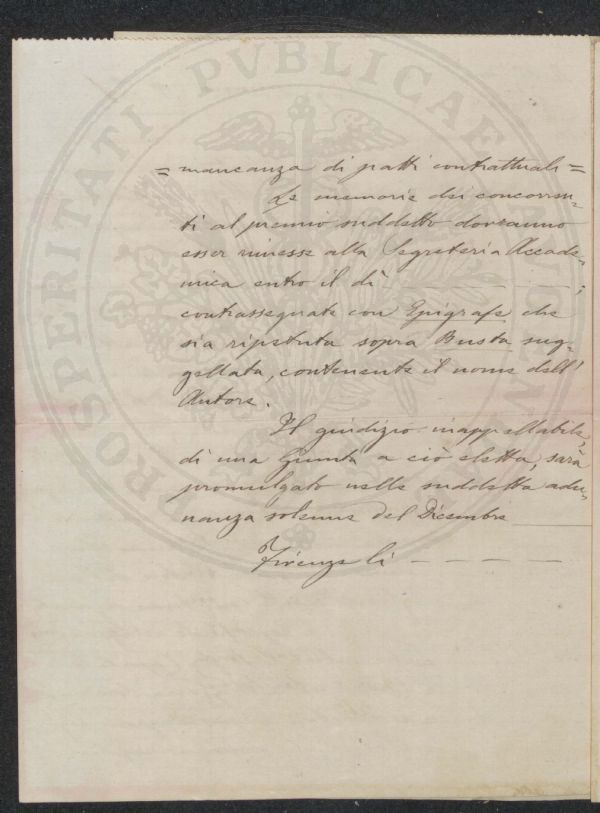 PROSPERITATI PVBLICAE
= mancanza di patti contrattuali =
Le memorie dei concorren-
ti al premio suddetto dovranno
esser rimesse alla Segreteria Accade-
mica entro il dì - - - - - - ;
contrassegnate con Epigrafe che
sia ripetuta sopra Busta sug-
gellata, contenente il nome dell'
Autore.
Il giudizio inappellabile
di una Giunta a ciò eletta, sarà
promulgato nella suddetta adu-
nanza solenne del Dicembre
Firenze li - - - -